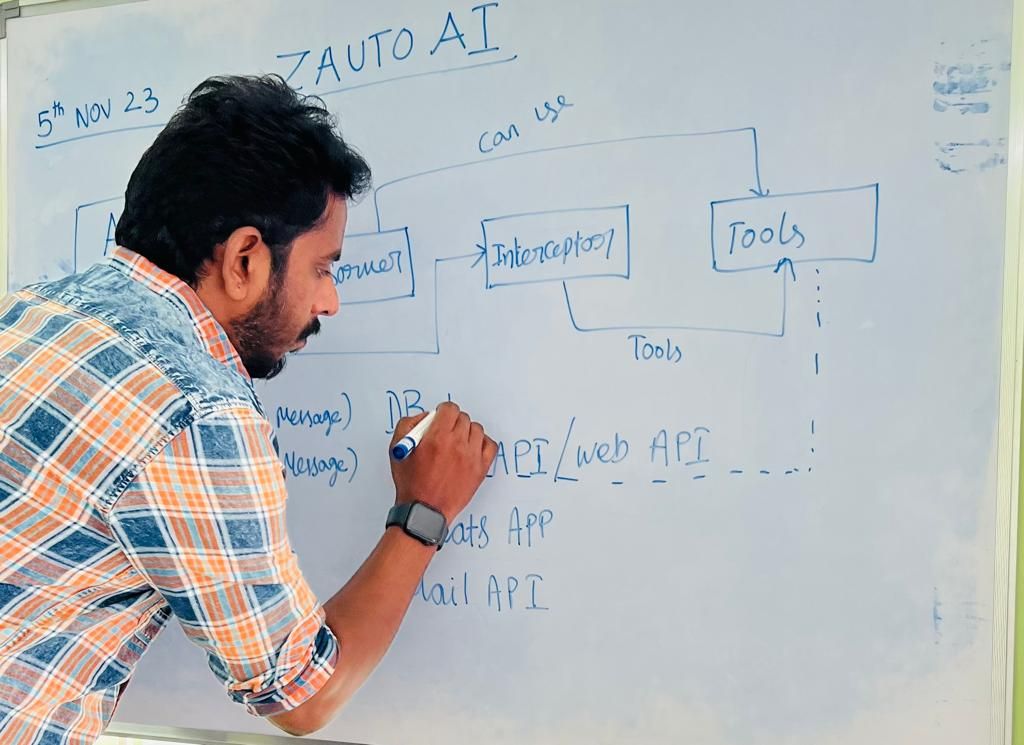 ZAUTO AI
5th NOV 23
can use
Interceptor
Tools
Tools
Message) DB
Message) API/web API
APP
API